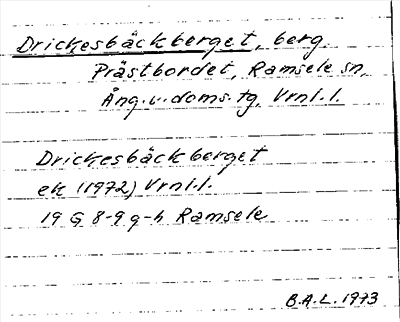 Drickesbäckberget, berg.
Prästbordet, Ramsele sn,
Ång.v.doms.tg, Vrnl.l.
Drickesbäckberget
ek (1972) Vrnl.l.
19 G 8-9 g-h Ramsele
B.A.L. 1973